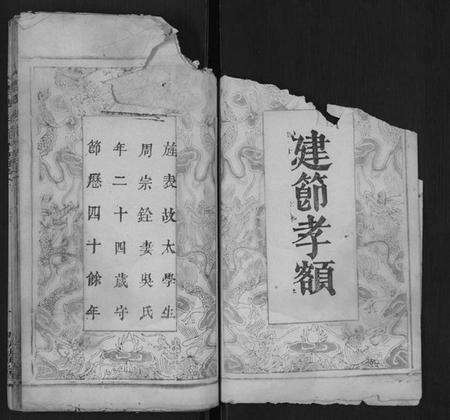 建節孝額
旌表故太學生
周崇銓妻吳氏
年二十四歲守
節歷四十餘年